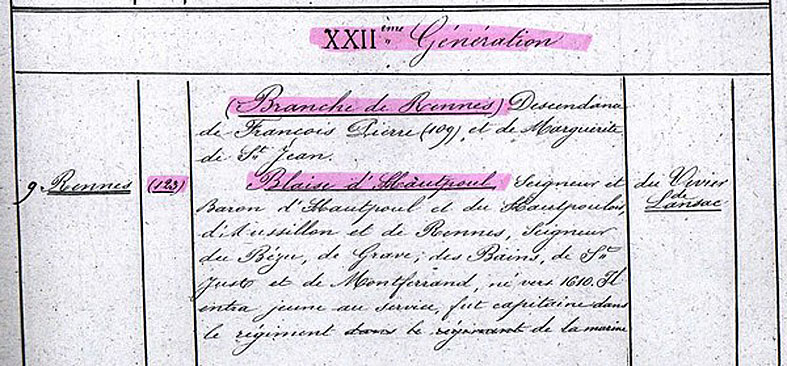 XXII ème Génération
(Branche de Rennes) Descendance
de François Pierre (109) et de Marguerite
de St Jean.
9 Rennes (123) Blaise d'Hautpoul, Seigneur et du Vivier
de
Baron d'Hautpoul et du Hautpoulois, Lansac
d'Aussillon et de Rennes, Seigneur
du Bézu, de Grave, des Bains, de St
Just et de Montferrand, né vers 1610. Il
entra jeune au service, fut capitaine dans
le régiment dans le régiment de la marine